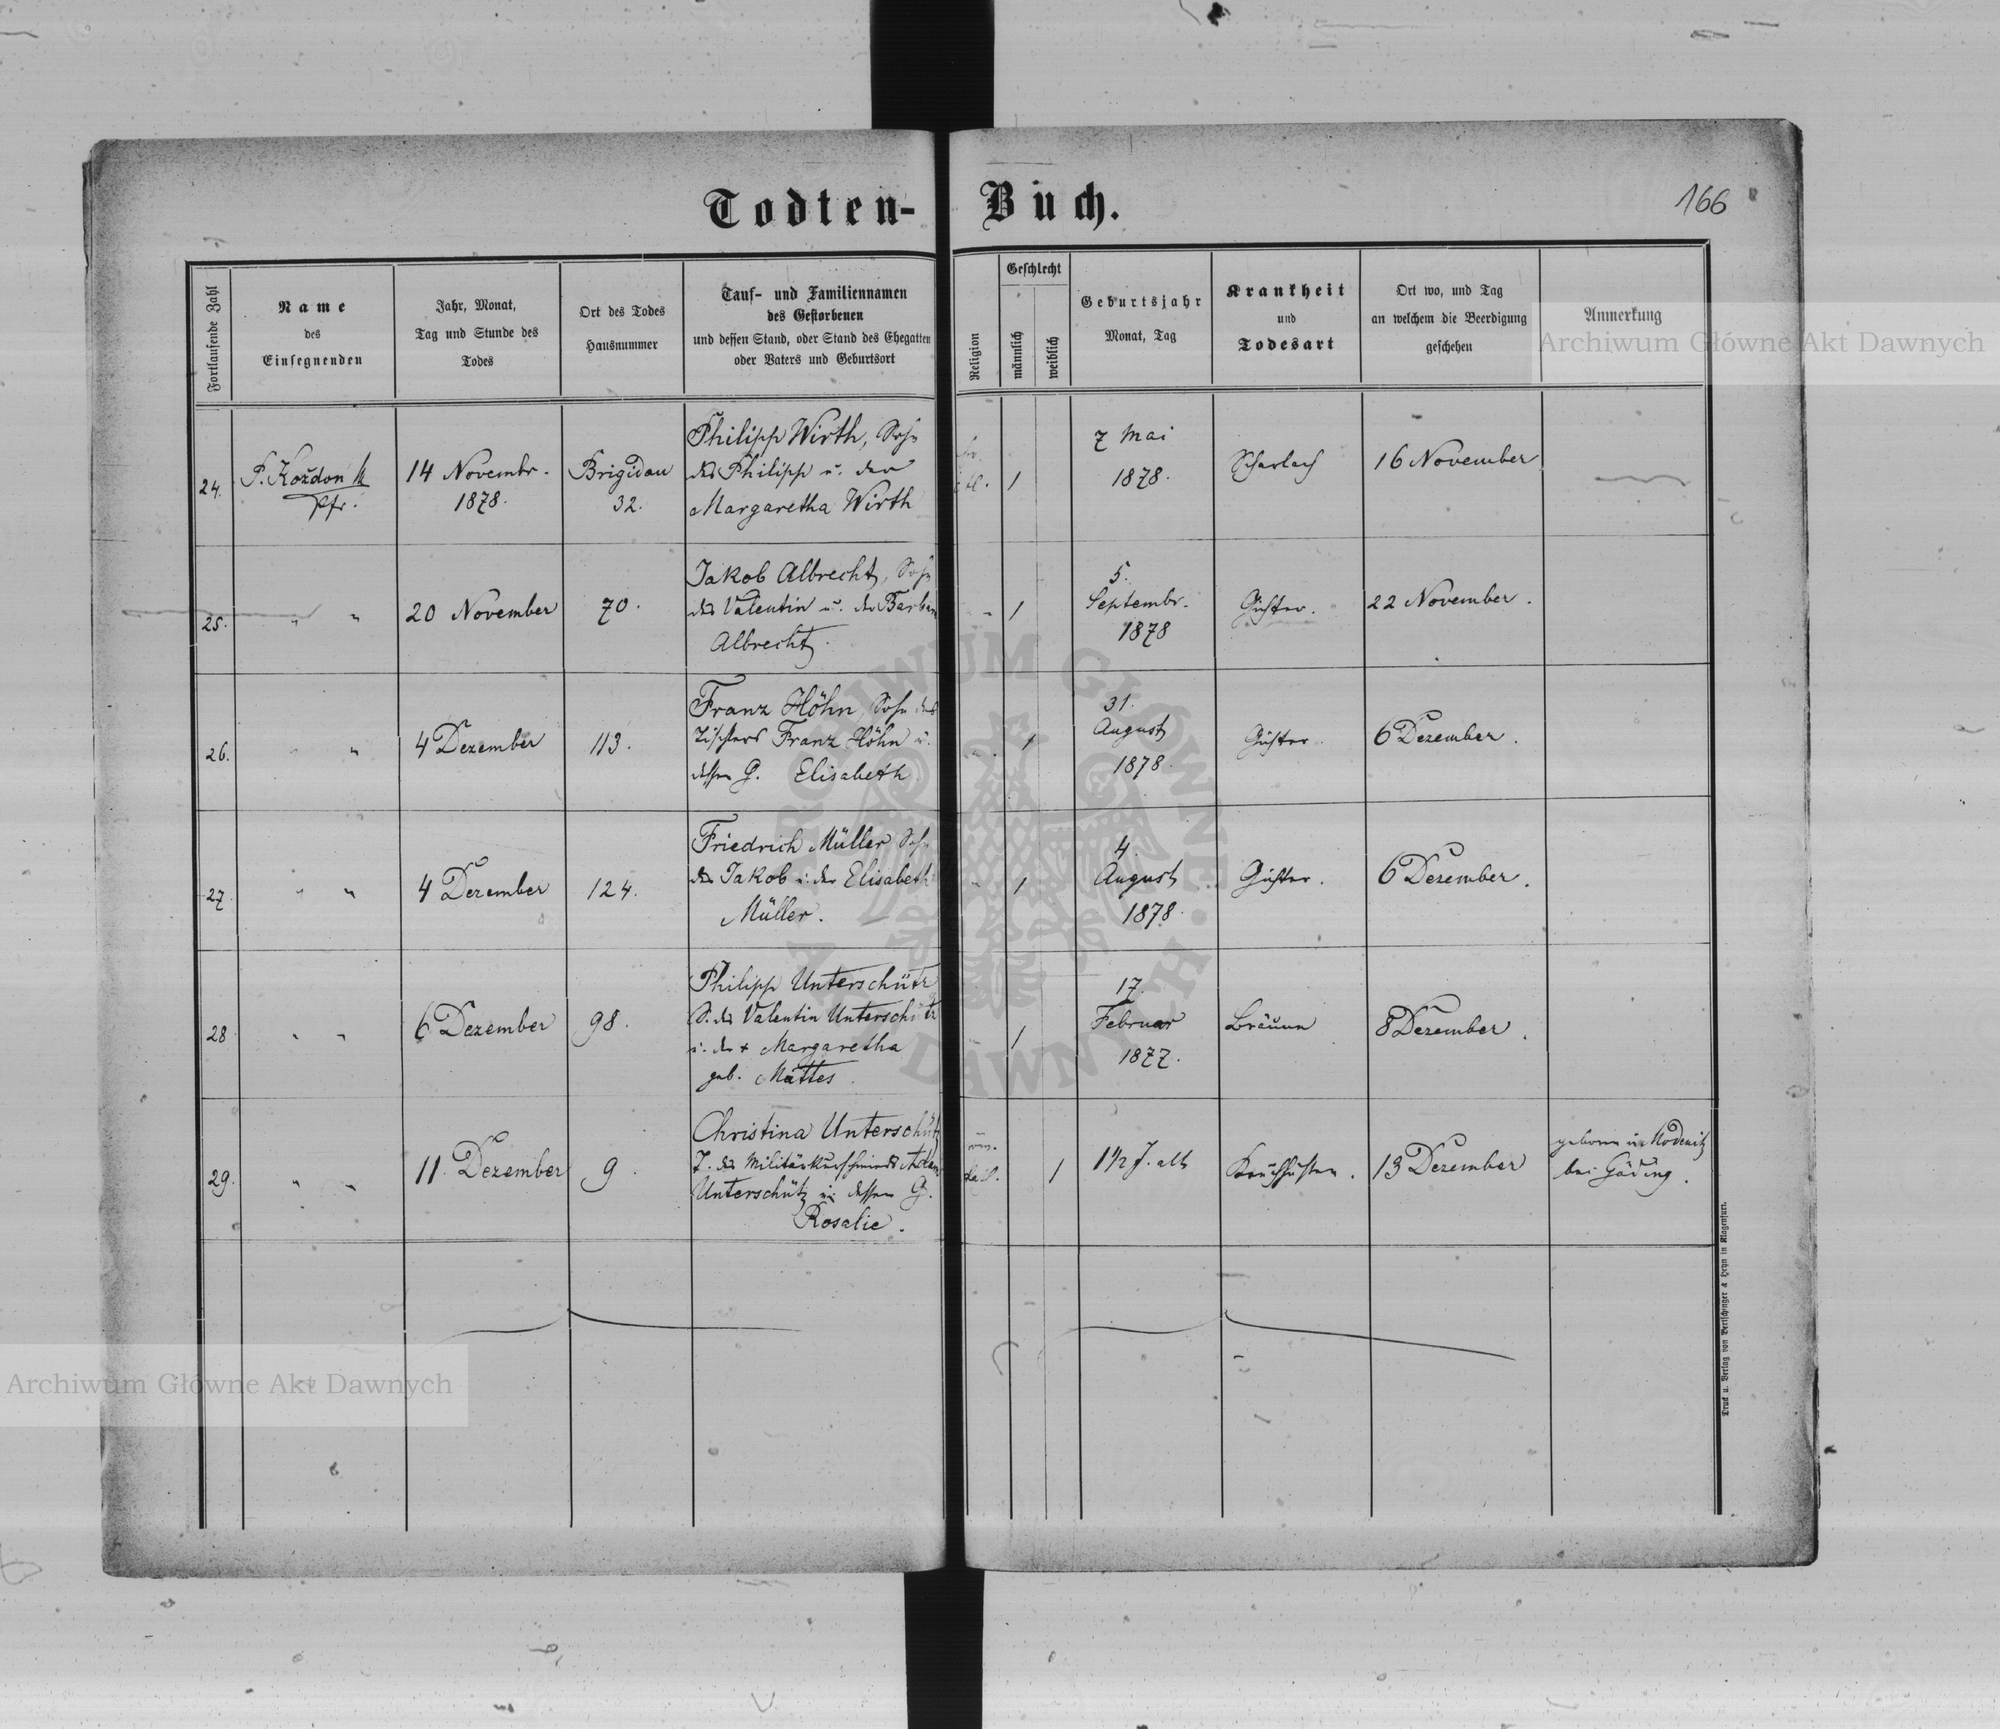 Todten-Buch.
166
Fortlaufende Zahl
Name
des
Einsegnenden
Jahr, Monat,
Tag und Stunde des
Todes
Ort des Todes
Hausnummer
Tauf- und Familiennamen
des Gestorbenen
und dessen Stand, oder Stand des Ehegatten
oder Vaters und Geburtsort
Religion
Geschlecht
männlich
weiblich
Geburtsjahr
Monat, Tag
Krankheit
und
Todesart
Ort wo, und Tag
an welchem die Beerdigung
geschehen
Anmerkung
Archiwum Główne Akt Dawnych
24.
P. Koždon
Pfr.
14 Novembr.
1878.
Brigidau
32.
Philipp Wirth, Sohn
des Philipp u. der
Margaretha Wirth
1
7 Mai
1878.
Scharlach
16 November
25.
" "
20 November
70.
Jakob Albrecht, Sohn
des Valentin u. der Barbara
Albrecht.
"
1
5.
Septembr.
1878
Gichter.
22 November.
26.
" "
4 Dezember
113.
Franz Höhn, Sohn des
Tischlers Franz Höhn u.
dessen G. Elisabeth
"
1
31.
August
1878.
Gichter.
6 Dezember.
27
" "
4 Dezember
124.
Friedrich Müller Sohn
des Jakob u. der Elisabeth
Müller.
"
1
4.
August
1878.
Gichter.
6 Dezember.
28
" "
6 Dezember
98.
Philipp Unterschütz
S. des Valentin Unterschütz
u. der + Margaretha
geb. Mattes.
1
17.
Februar
1877.
Bräune
8 Dezember.
29.
" "
11. Dezember
9.
Christina Unterschütz
T. des Militärkurschmieds Adam
Unterschütz u. dessen G.
Rosalie.
röm.
kath.
1
1 1/2 J. alt
Keuchhusten.
13 Dezember
geboren in
bei Göding.
Druck u. Verlag von Bertschinger & Heyn in Klagenfurt.
Archiwum Główne Akt Dawnych
ARCHIWUM GŁÓWNE AKT DAWNYCH